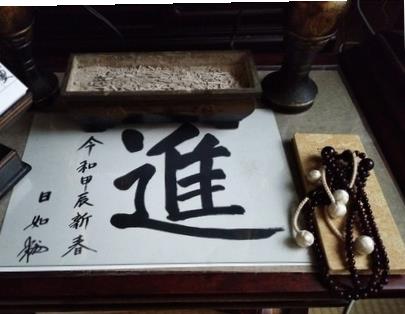 進
令和甲辰新春
日如